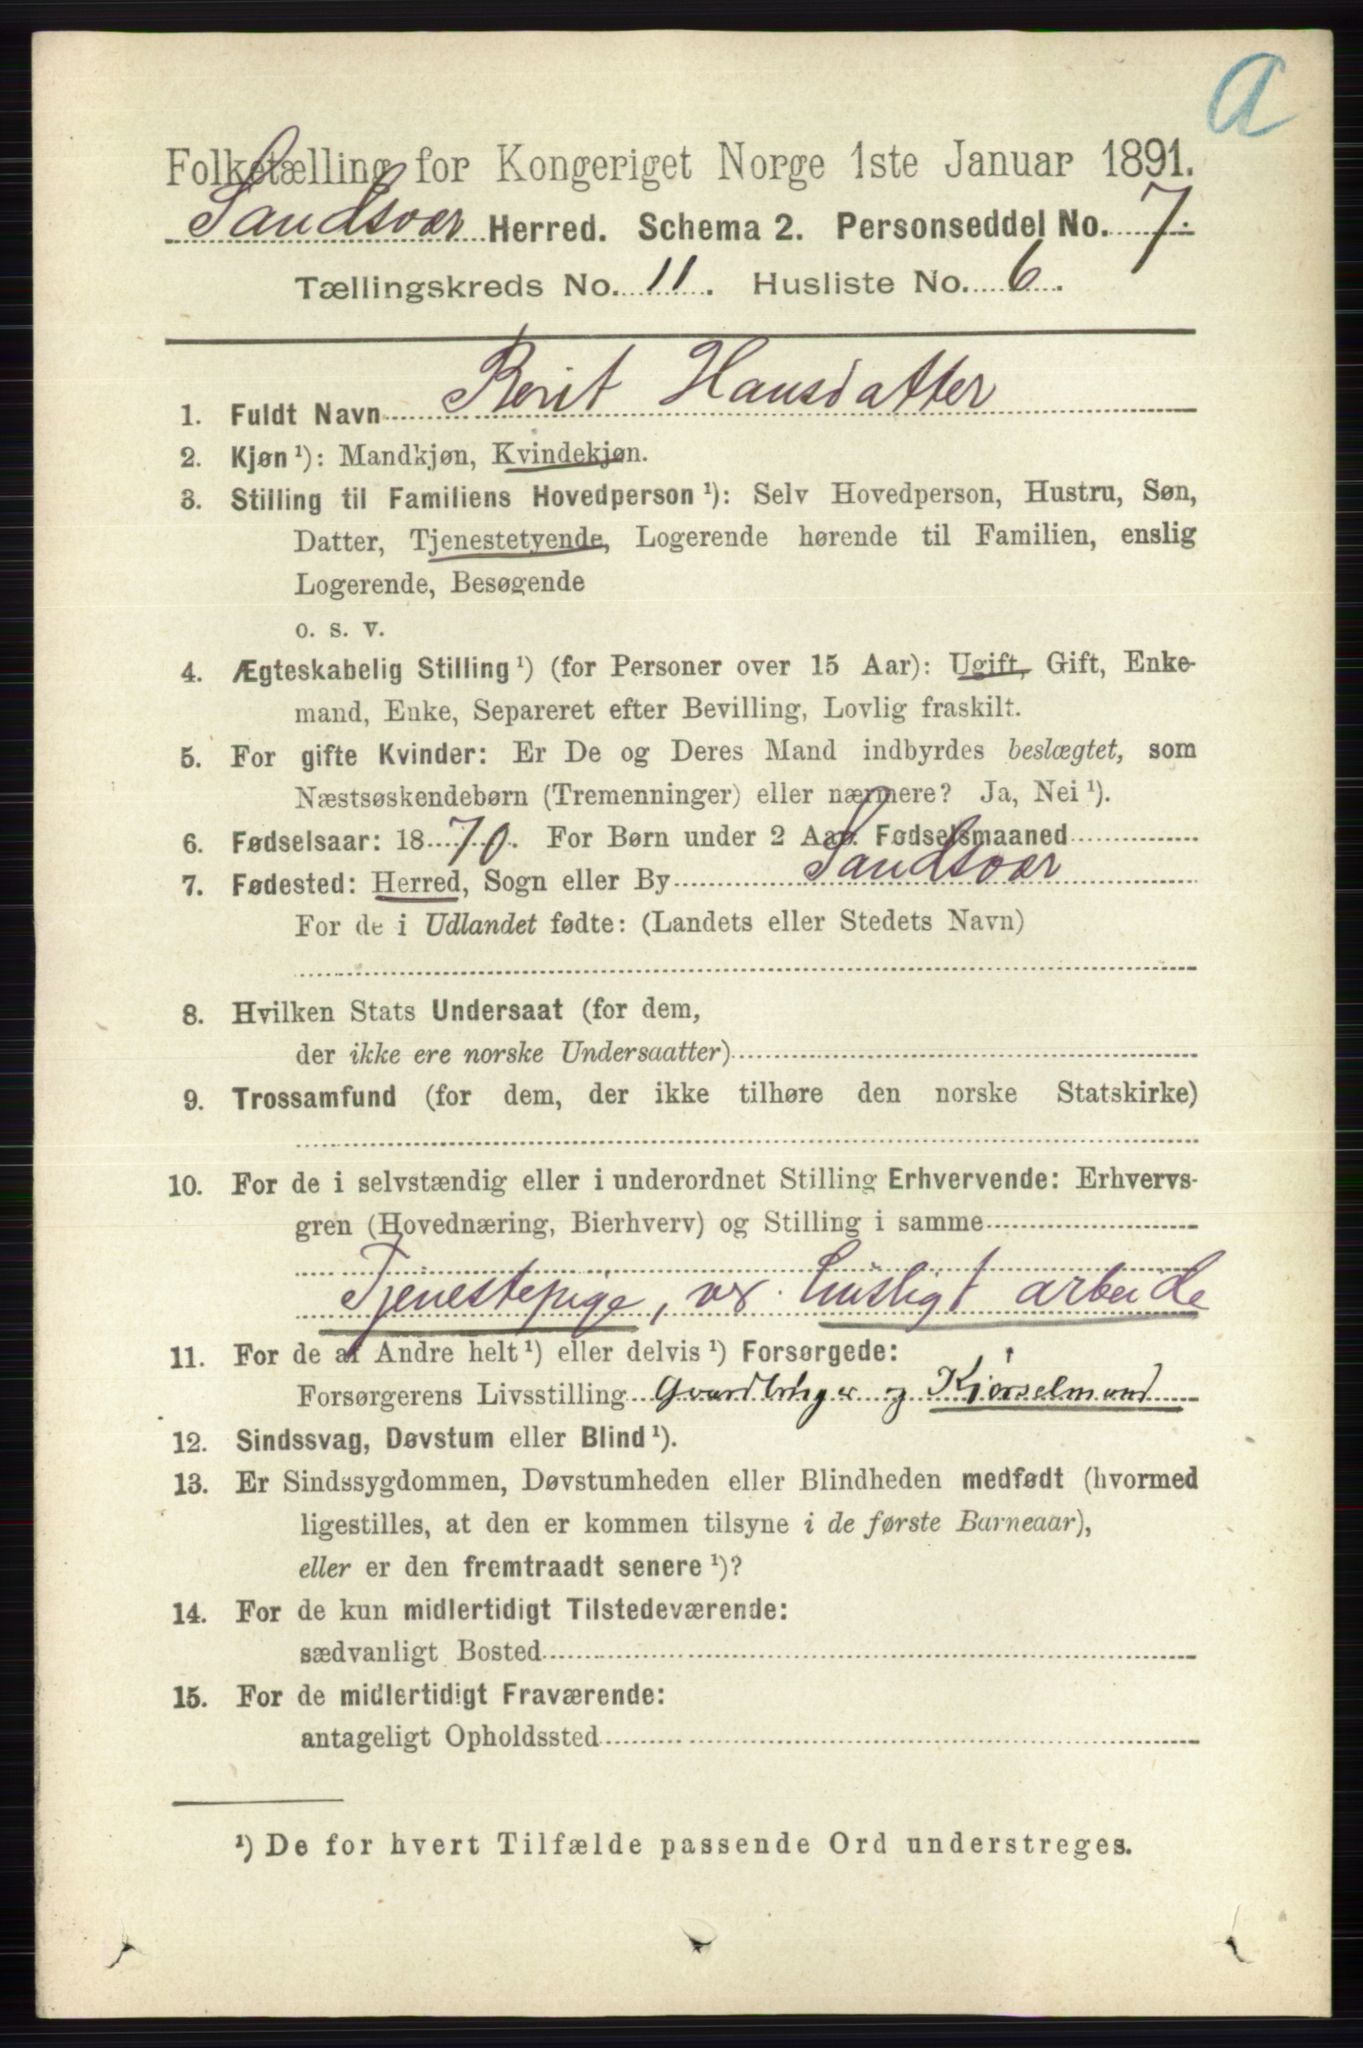 a
Folketælling for Kongeriget Norge 1ste Januar 1891.
Sandsvær Herred. Schema 2. Personseddel No. 7.
Tællingskreds No. 11. Husliste No. 6.
1. Fuldt Navn Berit Hansdatter
2. Kjøn ¹): Mandkjøn, Kvindekjøn.
3. Stilling til Familiens Hovedperson ¹): Selv Hovedperson, Hustru, Søn,
Datter, Tjenestetyende, Logerende hørende til Familien, enslig
Logerende, Besøgende
o. s. v.
4. Ægteskabelig Stilling ¹) (for Personer over 15 Aar): Ugift, Gift, Enke-
mand, Enke, Separeret efter Bevilling, Lovlig fraskilt.
5. For gifte Kvinder: Er De og Deres Mand indbyrdes beslægtet, som
Næstsøskendebørn (Tremenninger) eller nærmere? Ja, Nei ¹).
6. Fødselsaar: 1870. For Børn under 2 Aar Fødselsmaaned
7. Fødested: Herred, Sogn eller By Sandsvær
For de i Udlandet fødte: (Landets eller Stedets Navn)
8. Hvilken Stats Undersaat (for dem,
der ikke ere norske Undersaatter)
9. Trossamfund (for dem, der ikke tilhøre den norske Statskirke)
10. For de i selvstændig eller i underordnet Stilling Erhvervende: Erhvervs-
gren (Hovednæring, Bierhverv) og Stilling i samme
Tjenestepige, v. husligt arbeide
11. For de af Andre helt ¹) eller delvis ¹) Forsørgede:
Forsørgerens Livsstilling Gaardbruger og Kjørselmand
12. Sindssvag, Døvstum eller Blind ¹).
13. Er Sindssygdommen, Døvstumheden eller Blindheden medfødt (hvormed
ligestilles, at den er kommen tilsyne i de første Barneaar),
eller er den fremtraadt senere ¹)?
14. For de kun midlertidigt Tilstedeværende:
sædvanligt Bosted
15. For de midlertidigt Fraværende:
antageligt Opholdssted
¹) De for hvert Tilfælde passende Ord understreges.